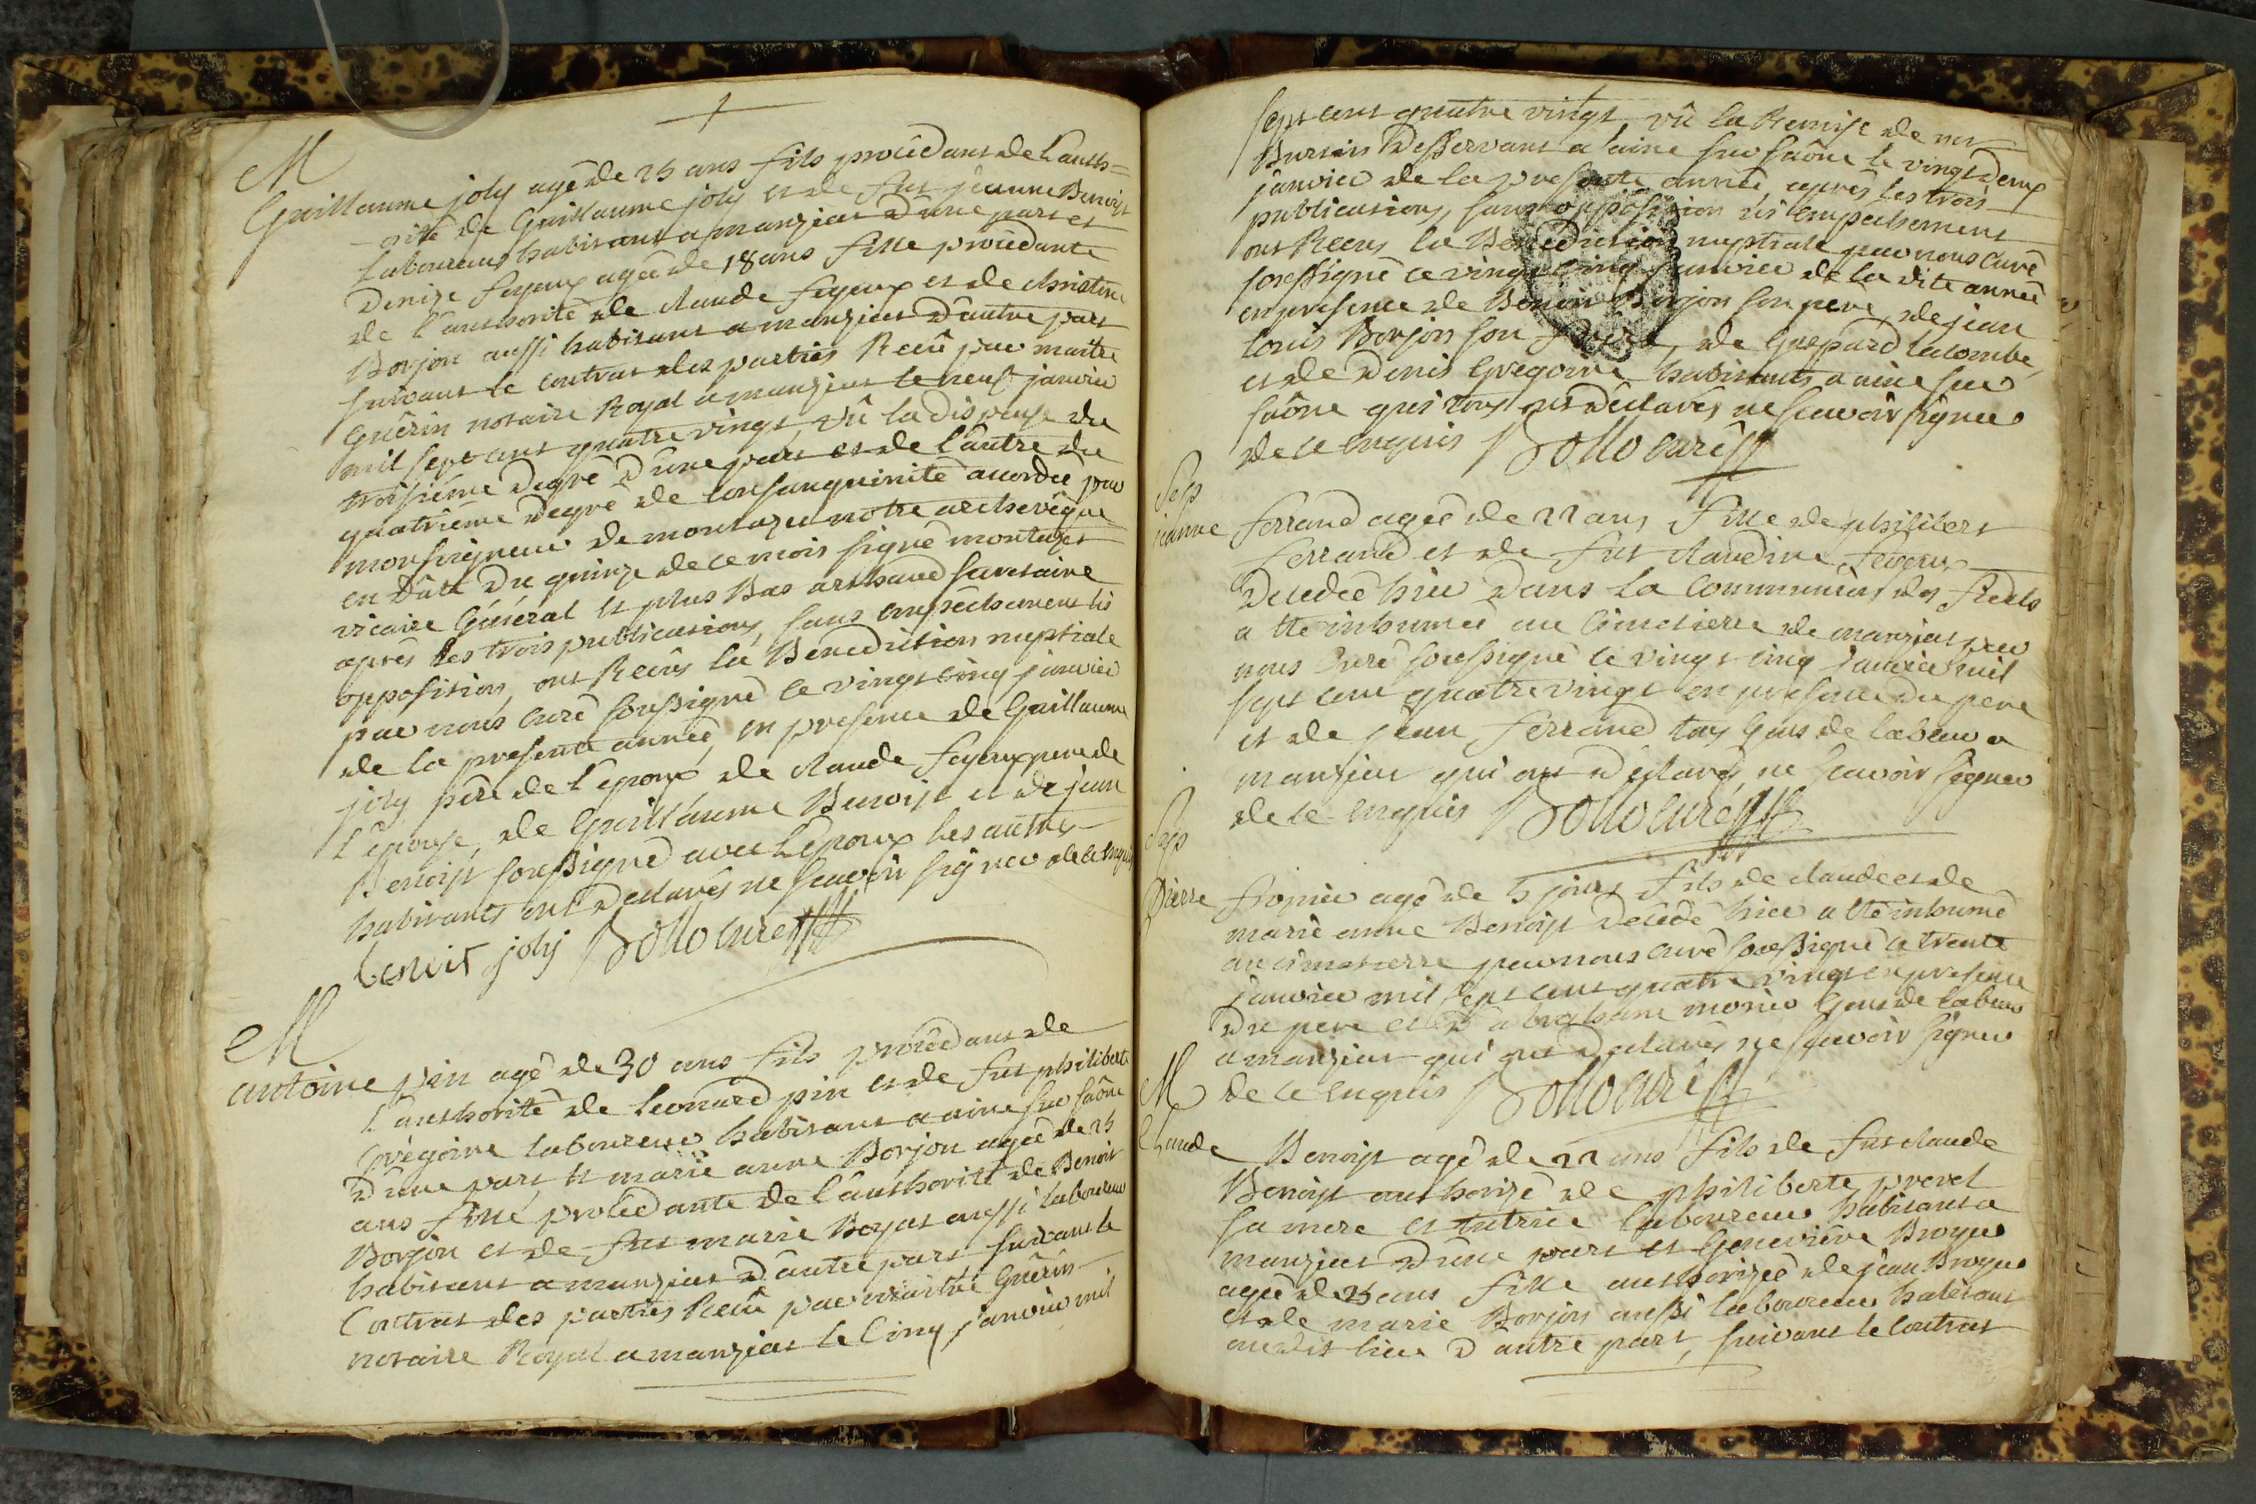 M
Guillaume joly agé de 25 ans fils procédant de l'auth=
=orité de Guillaume joly et de fut jeanne Benoist
laboureurs habitant a manziat d'une part et
Denize feyeux agée de 18 ans fille procédante
de l'authorité de claude feyeux et de christine
Borjon aussi habitant a manziat d'autre part
suivant le contrat des parties Recû par maitre
Guérin notaire Royal a manziat le neuf janvier
mil sept cent quatre vingt vû la dispense du
troisiéme degré d'une part et de l'autre du
quatriéme degré de consanguinité accordée par
monseigneur de montazet notre archevêque
en date du quinze de ce mois signé montazet
vicaire Général et plus Bas arthaud secretaire
aprés les trois publications, sans empêchement ni
opposition, ont Recûs la Benediction nuptiale
par nous curé soussigné le vingt cinq janvier
de la presente année, en presence de Guillaume
joly père de l'époux de claude feyeux pere de
l'épouse, de Guillaume Benoist et de jean
Benoist soussigné avec l'époux les autres
habitants ont declarés ne scavoir signer de ce enquis
benoit joly Bollo curé
M
antoine pin agé de 30 ans fils procédant de
l'authorité de leonard pin et de fut philiberte
Grégoire laboureur habitant a aine sur saône
d'une part, et marie anne Borjon agée de 25
ans fille procédante de l'authorité de Benoit
Borjon et de fut marie Boyat aussi laboureur
habitant a manziat d'autre part suivant le
Contrat des parties Recû par maitre Guérin
notaire Royal a manziat le Cinq janvier mil
sept cent quatre vingt vû la Remise de mr
Burtin Desservant a l'aine sur saône le vingt deux
janvier de la presente année, aprés les trois
publications, sans opposition ni empechement
ont Recus la Benediction nuptiale par nous curé
soussigné le vingt cinq janvier de la dite année
en presence de Benoit Borjon son pere, de jean
louis Borjon son frere, de Gaspard lacombe,
et de Denis Gregoire habitants a aine sur
saône qui tous ont déclarés ne scavoir signer
de ce enquis Bollo curé
Sep
jeanne ferrand agée de 22 ans fille de philibert
ferrand et de fut claudine feyeux
decedée hier dans la Communion des fidels
a eté inhumée au Cimetierre de manziat par
nous Curé soussigné le vingt cinq janvier mil
sept cent quatre vingt en presence du pere
et de jean ferrand tous Gens de labeur a
manziat qui ont déclarés ne scavoir signer
de ce enquis Bollo curé
Sep
Pierre agé de 5 jours fils de claude et de
marie anne Benoist décédé hier a eté inhumé
au cimetierre par nous curé soussigné le trente
janvier mil sept cent quatre vingt en presence
du pere et d'abraham Gens de labeur
a manziat qui ont declarés ne scavoir signer
de ce enquis Bollo curé
M
Claude Benoist agé de 22 ans fils de fut claude
Benoist authorizé de philiberte prevel
sa mere et tutrice laboureur habitant a
manziat d'une part et Geneviéve Broyer
agée de 25 ans fille authorizée de jean Broyer
et de marie Borjon aussi laboureur habitant
au dit lieu d'autre part, suivant le Contrat